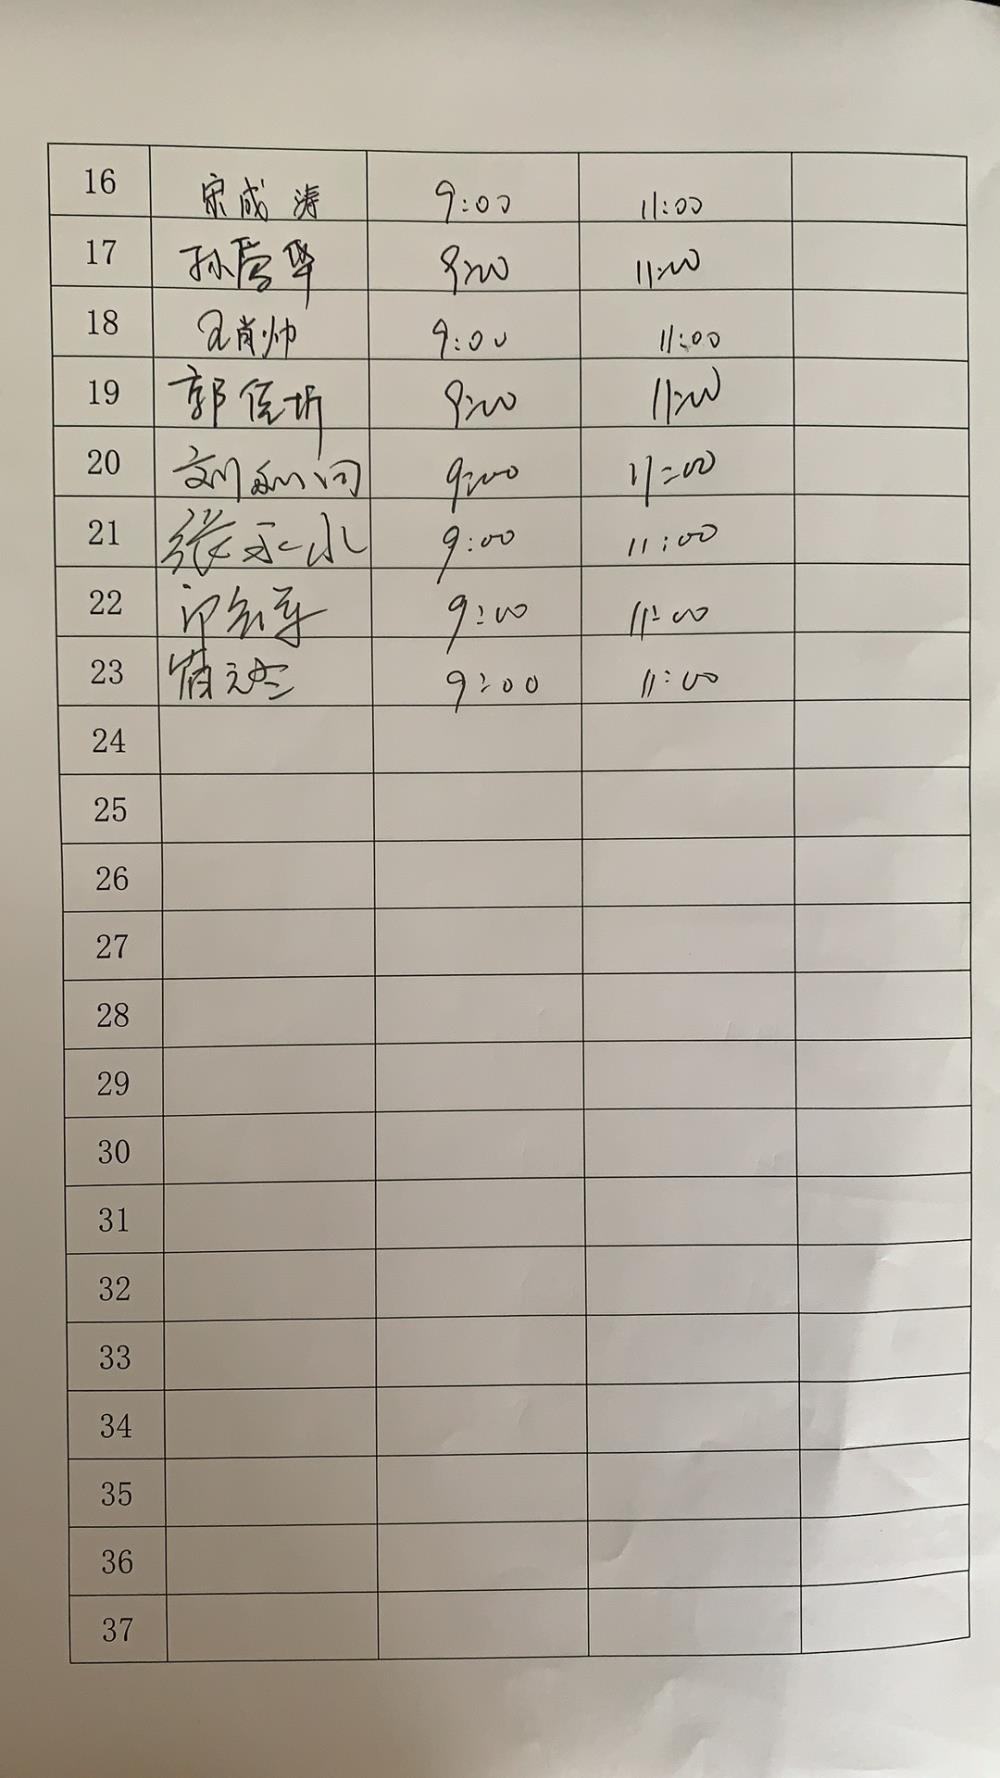 16 宋成涛 9:00 11:00
17 孙彦华 9:00 11:00
18 王肖帅 9:00 11:00
19 郭佳圻 9:00 11:00
20 刘 9:00 11:00
21 张永水 9:00 11:00
22 9:00 11:00
23 9:00 11:00
24
25
26
27
28
29
30
31
32
33
34
35
36
37